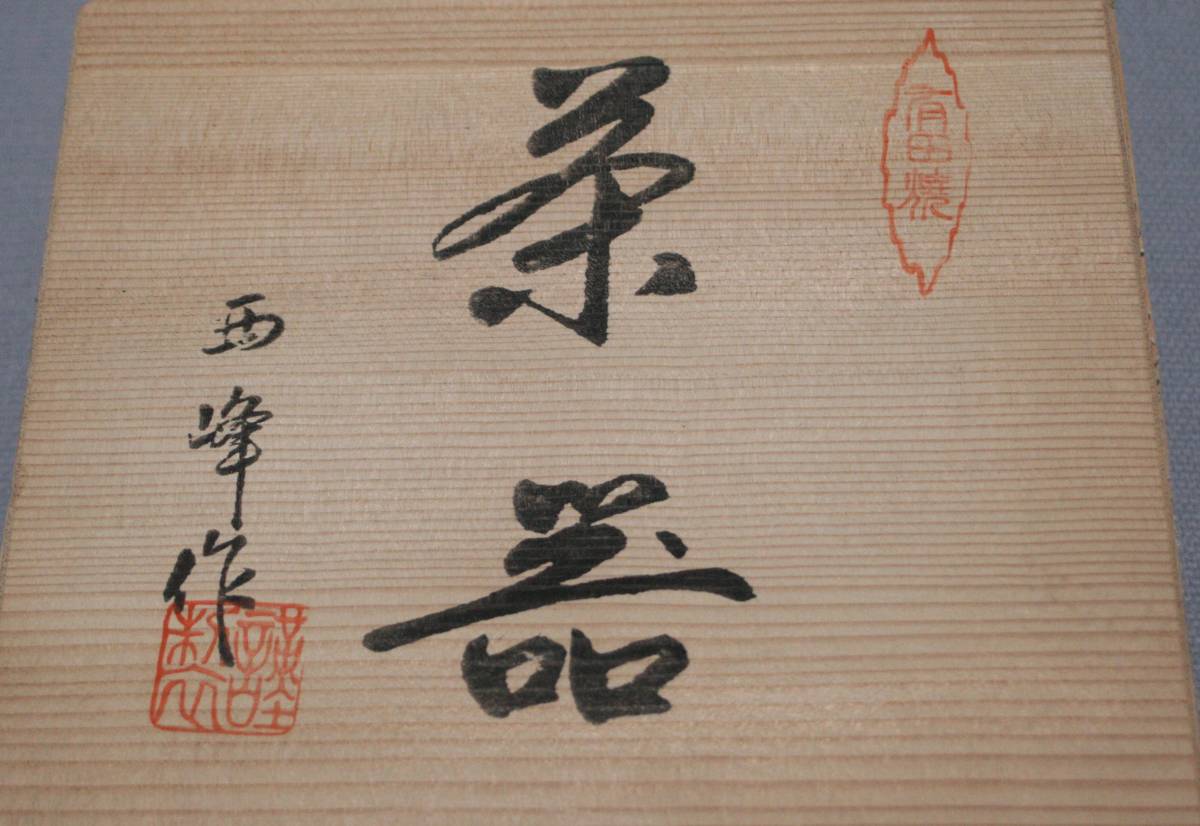 有田焼
茶器
西峰作
謹製